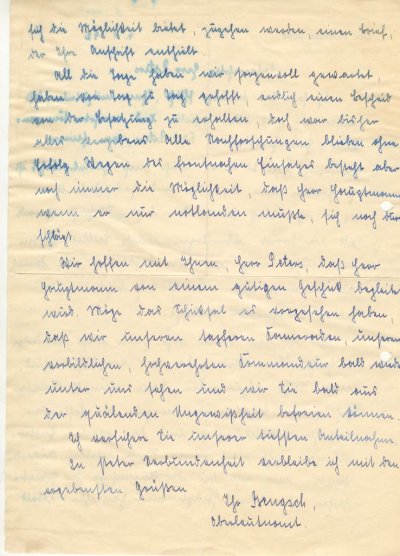 sich die Möglichkeit bietet, zugehen werden, einen Brief,
der Ihre Anschrift enthielt.
All die Tage haben wir sorgenvoll gewartet,
haben von Tag zu Tag gehofft, endlich einen Bescheid
von der Besatzung zu erhalten, doch war bisher
alles vergebens. Alle Nachforschungen blieben ohne
Erfolg. Wegen des frontnahen Einsatzes besteht aber
noch immer die Möglichkeit, daß Herr Hauptmann
wenn er nur notlanden mußte, sich noch dur
schlägt.
Wir hoffen mit Ihnen, Herr Peters, daß Herr
Hauptmann von einem gütigen Geschick begleite
wird. Möge das Schicksal es vorgesehen haben,
daß wir unseren tapferen Kameraden, unseren
vorbildlichen, hochverehrten Kommandeur bald wieder
unter uns sehen und wir Sie bald aus
der quälenden Ungewißheit befreien können.
Ich versichere Sie unserer tiefsten Anteilnahme.
In steter Verbundenheit verbleibe ich mit den
ergebensten Grüßen
Ihr Bengsch,
Oberleutnant.